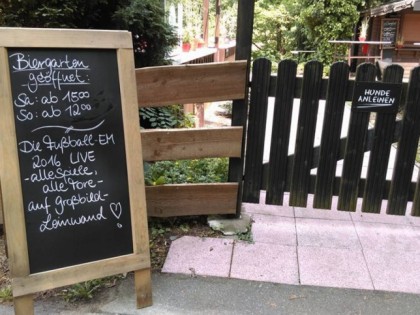 Biergarten
geöffnet:
Sa: ab 15.00
So: ab 12.00
Die Fußball-EM
2016 LIVE
-alle Spiele,
alle Tore-
auf Großbild-
Leinwand
HUNDE
ANLEINEN